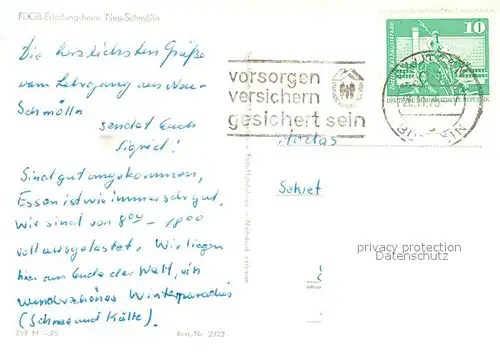 FDGB-Erholungsheim Neu-Schmölln
10
DEUTSCHE DEMOKRATISCHE REPUBLIK
vorsorgen
versichern
gesichert sein
Die herzlichsten Grüße
vom Lehrgang aus Neu-
Schmölln
sendet Euch
Sigrid!
Sind gut angekommen,
Essen ist wie immer sehr gut,
wir sind von 8⁰⁰ - 18⁰⁰
voll ausgelastet. Wir liegen
hier am Ende der Welt, ein
wunderschönes Winterparadies
(Schnee und Kälte).
Sekret
privacy protection
Datenschutz
EVP M -,25
Best.-Nr. 2322